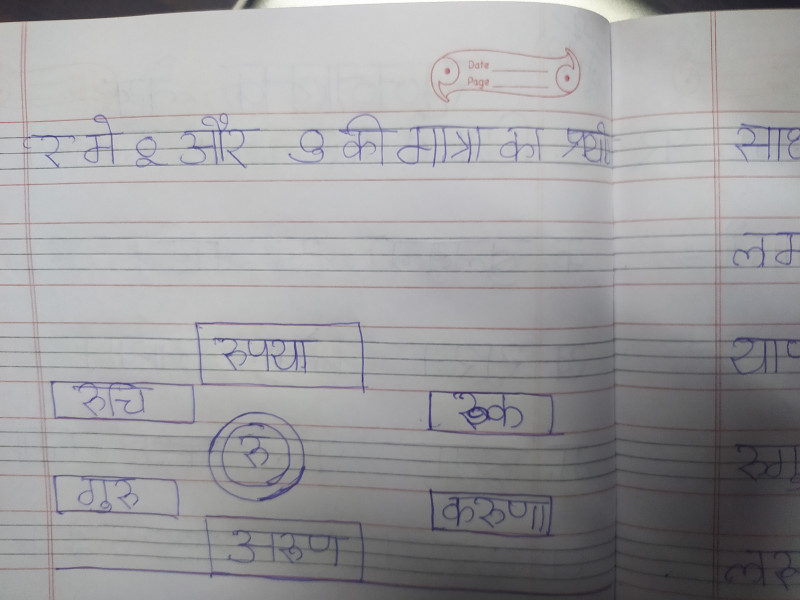 Date
Page
र मे ु और ू की मात्रा का प्रयो
रुपया
रुचि
रुक
रु
गुरु
करुणा
अरुण
साध
लम
याप
रुग
लरु